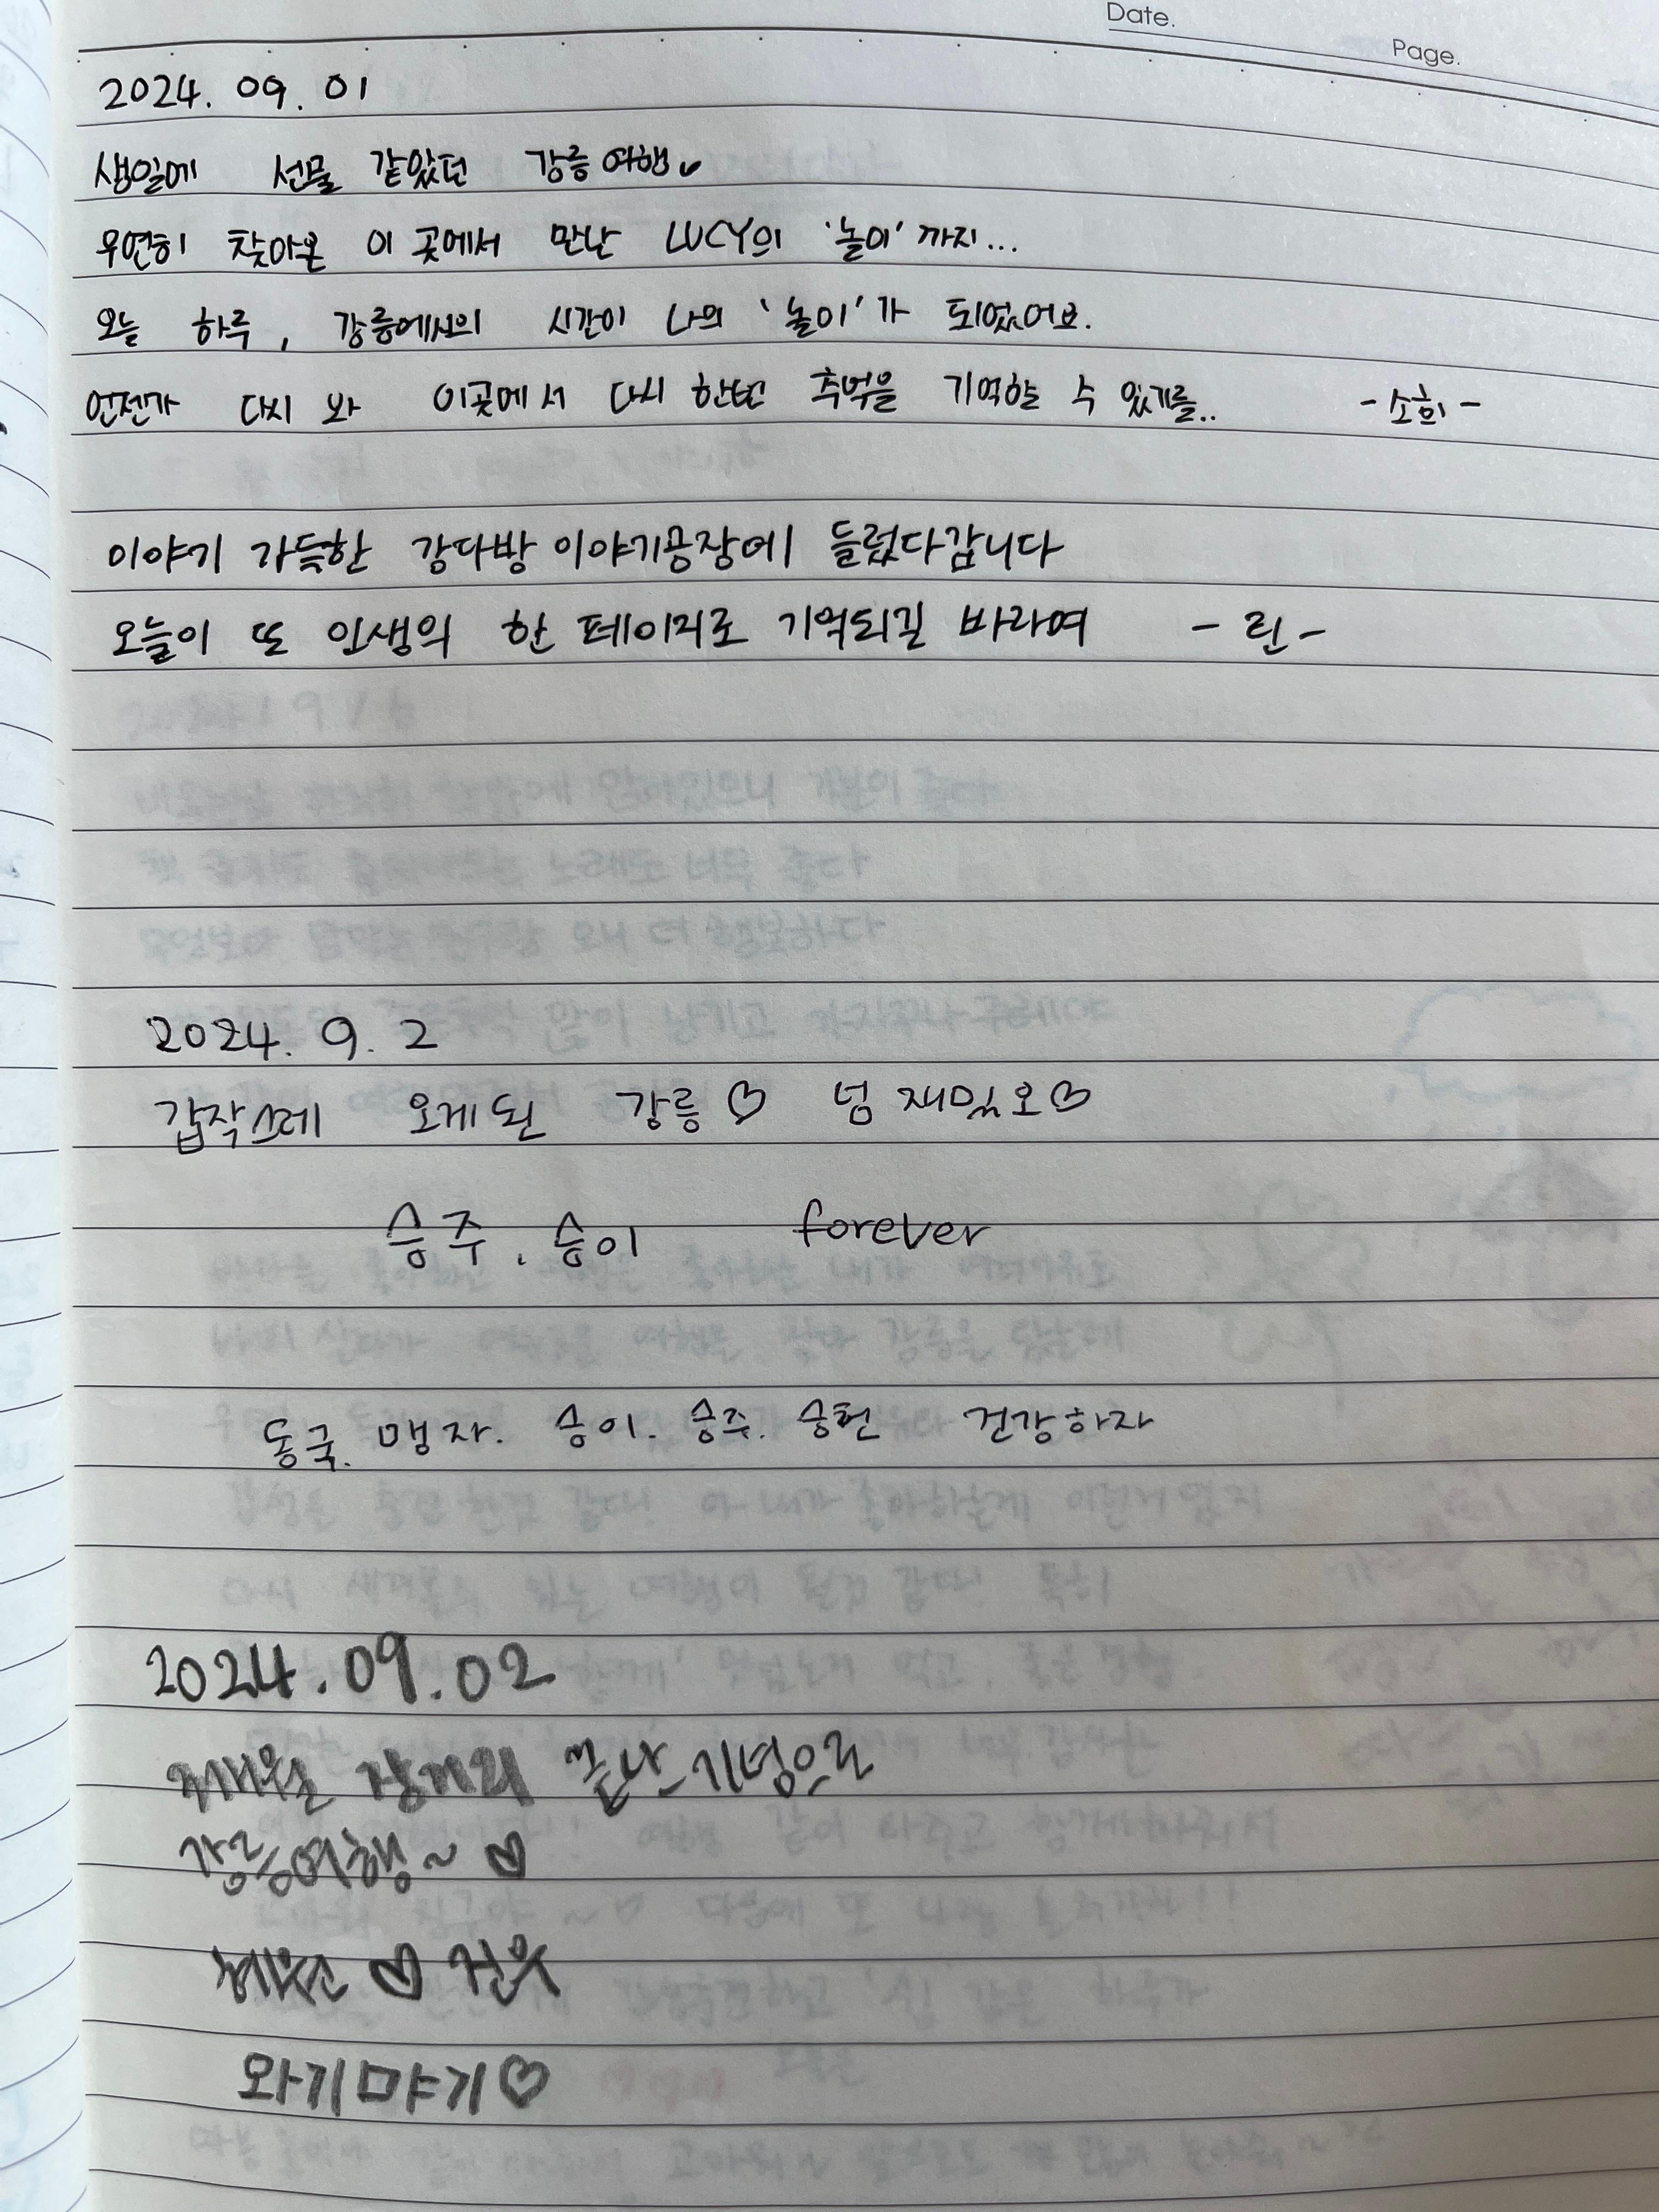 Date.
Page.
2024. 09. 01
생일에 선물 같았던 강릉여행
우연히 찾아온 이 곳에서 만난 LUCY의 '놀이' 까지...
오늘 하루, 강릉에서의 시간이 나의 '놀이'가 되었어요.
언젠가 다시 와 이곳에서 다시 한번 추억을 기억할 수 있기를.. -소희-
이야기 가득한 강다방 이야기공장에 들렀다갑니다
오늘이 또 인생의 한 페이지로 기억되길 바라며 -린-
2024. 9. 2
갑작스레 오게된 강릉♡ 넘 재밌오♡
승주, 승이 forever
동국. 맹자. 승이. 승주. 승헌 건강하자
2024.09.02
끝난 기념으로
강릉여행~ ♡
♡ 건우
와기먀기♡